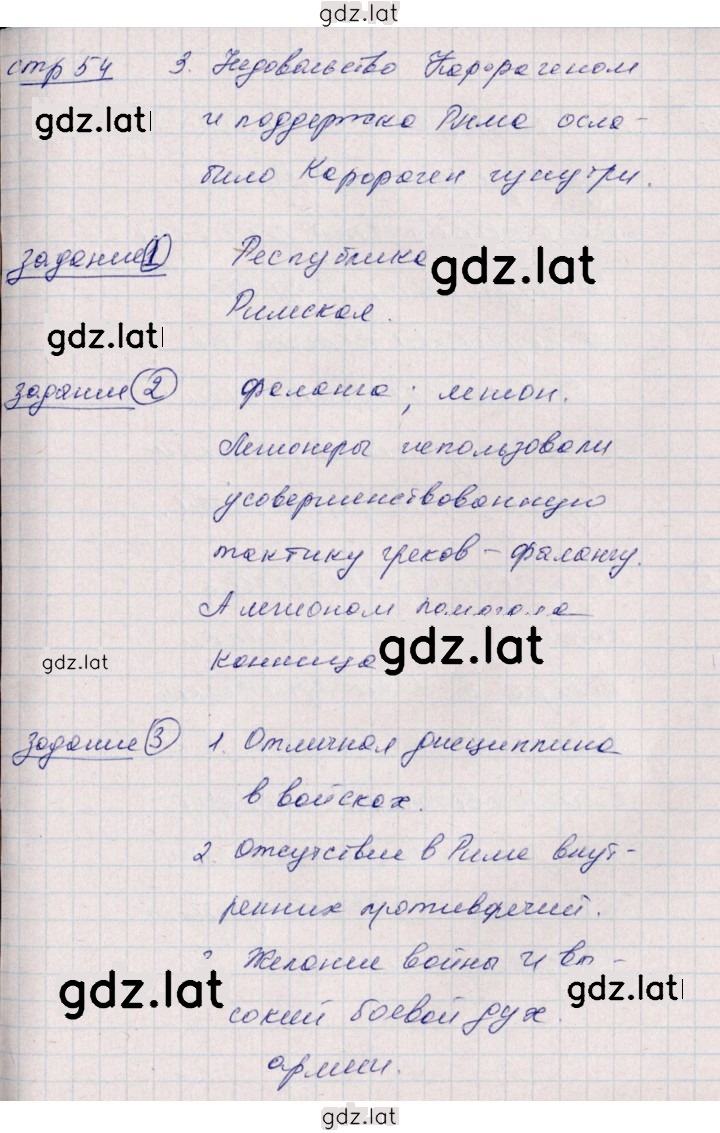 gdz.lat
стр 54 3. Недовольство Карфагеном
gdz.lat
и поддержка Рима осла-
било Карфаген изнутри.
задание 1 Республика
gdz.lat
Римская.
gdz.lat
задание 2 фаланга; легион.
Легионеры использовали
усовершенствованную
тактику греков – фалангу.
А легионом помогала
gdz.lat
конница
gdz.lat
задание 3 1. Отличная дисциплина
в войсках.
2. Отсутствие в Риме внут-
ренних противоречий.
Желание войны и вы-
gdz.lat
gdz.lat
сокий боевой дух.
армии.
gdz.lat